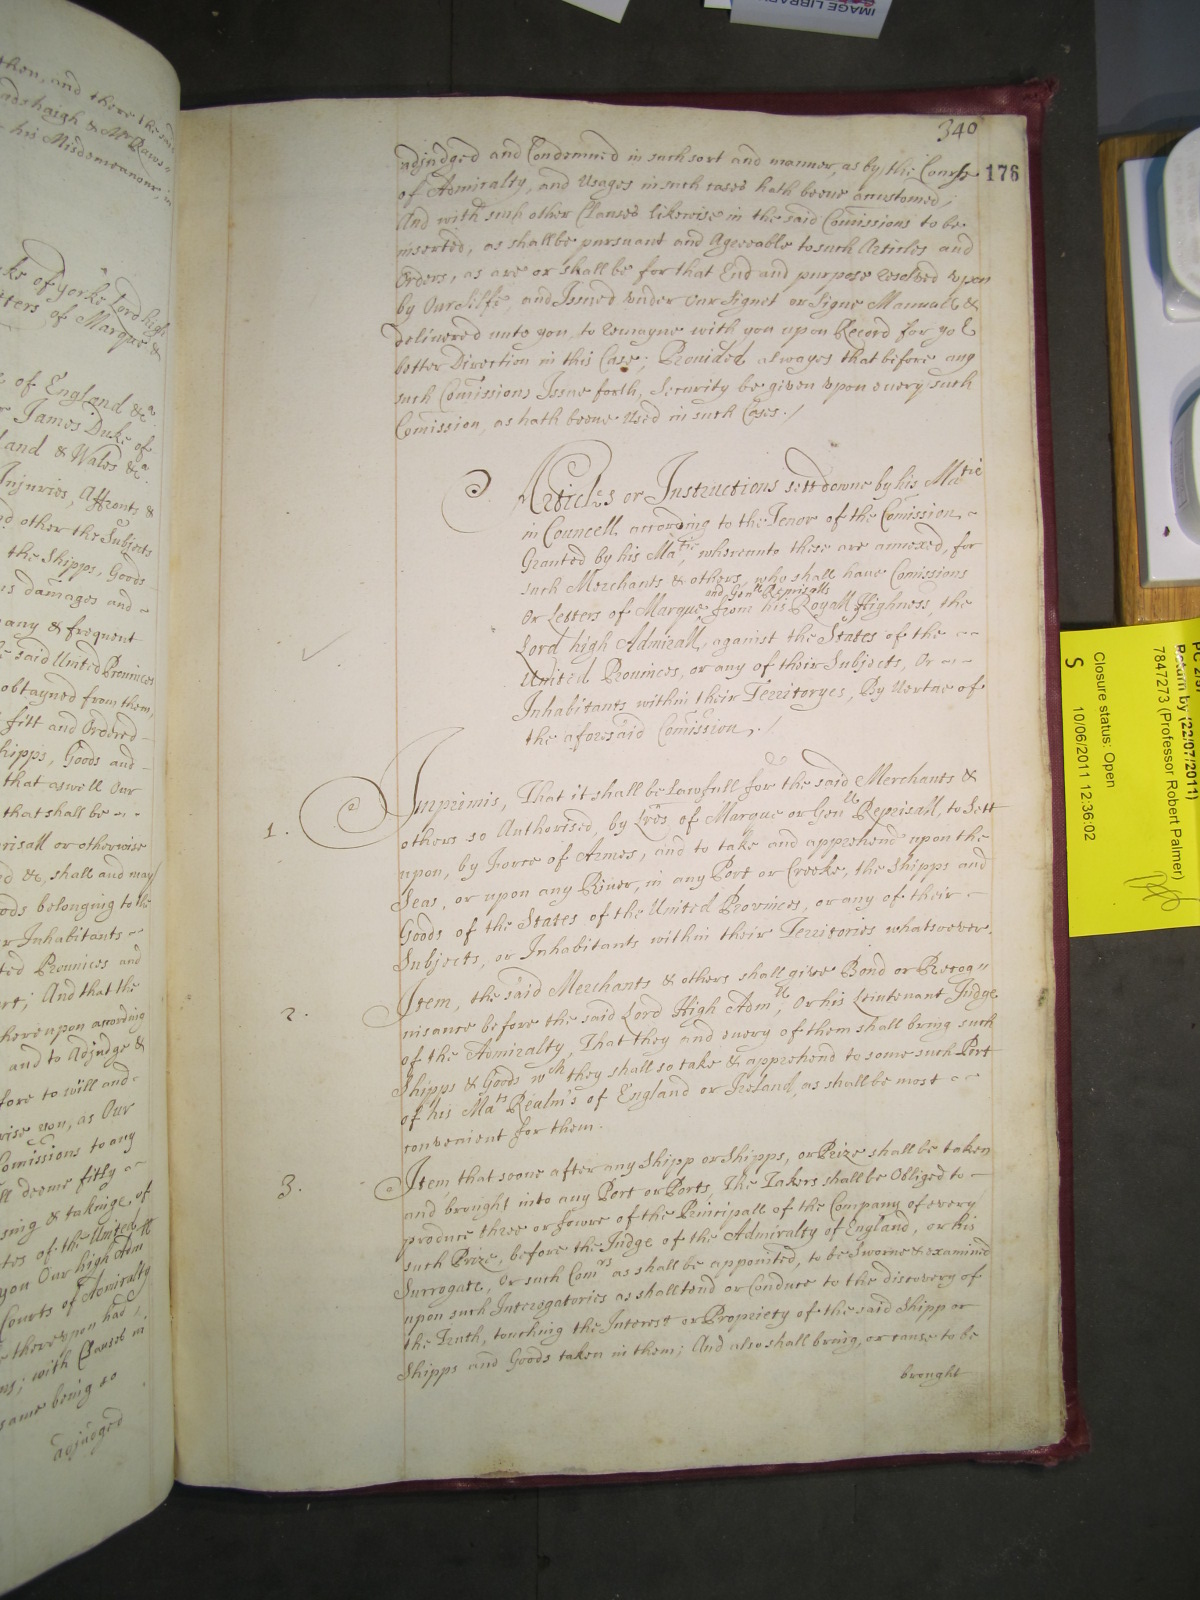 then, and there the said
adshaigh & Mr Raws
his Misdemeanour, in
ke of yorke Lord high
tters of Marque &
of England &ca
James Duke of
land & Wales &ca
Injuries, Affronts &
d other the Subjects
the Shipps, Goods
us damages and
any & frequent
e said United Provinces
obtayned from them,
fitt and Ordered
hipps, Goods and
that aswell Our
that shall be
risall or otherwise
d &c, shall and may
ods belonging to the
r Inhabitants
ted Provinces and
rt; And that the
hereupon according
and to Adjudge &
fore to will and
rise you, as Our
Comissions to any
ll deeme fitly
sing & takinge of
tes of the United
you Our high Adm
Courts of Admiralty
thereupon had
ns; with Clauses in
same being so
adjudged
340
176
adjudged and Condemned in such sort and manner, as by the Course
of Admiralty, and Usages in such cases hath beene accustomed;
And with such other Clauses likewise in the said Comissions to be
inserted, as shallbe pursuant and Agreeable to such Articles and
Orders, as are or shall be for that End and purpose resolved upon
by Our Selfe, and Issued under our Signet or Signe Manuall &
delivered unto you, to remayne with you upon Record for yor
better Direction in this Case; Provided alwayes that before any
such Comissions Issue forth, Security be given upon every such
Comission, as hath beene Used in such Cases./
Articles or Instructions sett downe by his Matie
in Councell according to the Tenor of the Comission
Granted by his Matie, whereunto these are annexed, for
such Merchants & others, who shall have Comissions
and Genll Reprisalls
Or Letters of Marque from his Royall Highness, the
Lord high Admirall, against the States of the
United Provinces, or any of their Subjects, Or
Inhabitants within their Territoryes, By Vertue of
the aforesaid Comission./
1. Imprimis, That it shall be Lawfull for the said Merchants &
others so Authorised, by Lres of Marque or Genll Reprisall, to Sett
upon, by Force of Armes, and to take and apprehend upon the
Seas, or upon any River, in any Port or Creeke, the Shipps and
Goods of the States of the United Provinces, or any of their
Subjects, or Inhabitants within their Territories whatsoever.
2. Item, the said Merchants & others shall give Bond or Recog"
nisance before the said Lord High Admll, Or his Leiutenant Judge
of the Admiralty, That they and every of them shall bring such
Shipps & Goods wch they shall so take & apprehend to some such Port
of his Mats Realm's of England or Ireland, as shall be most
convenient for them.
3. Item that soone after any Shipp or Shipps, or Prize shall be taken
and brought into any Port or Ports, The Takers shall be Obliged to
produce three or fowre of the Principall of the Company of every
such Prize, before the Judge of the Admiralty of England, or his
Surrogate, Or such Comrs as shall be appointed, to be Sworne & examined
upon such Interogatories as shall tend or Conduce to the discovery of
the Truth, touching the Interest or Propriety of the said Shipp or
Shipps and Goods taken in them; And also shall bring, or cause to be
brought
IMAGE LIBRARY
Return by (22/07/2011)
7847273 (Professor Robert Palmer)
Closure status: Open
S 10/06/2011 12:36:02